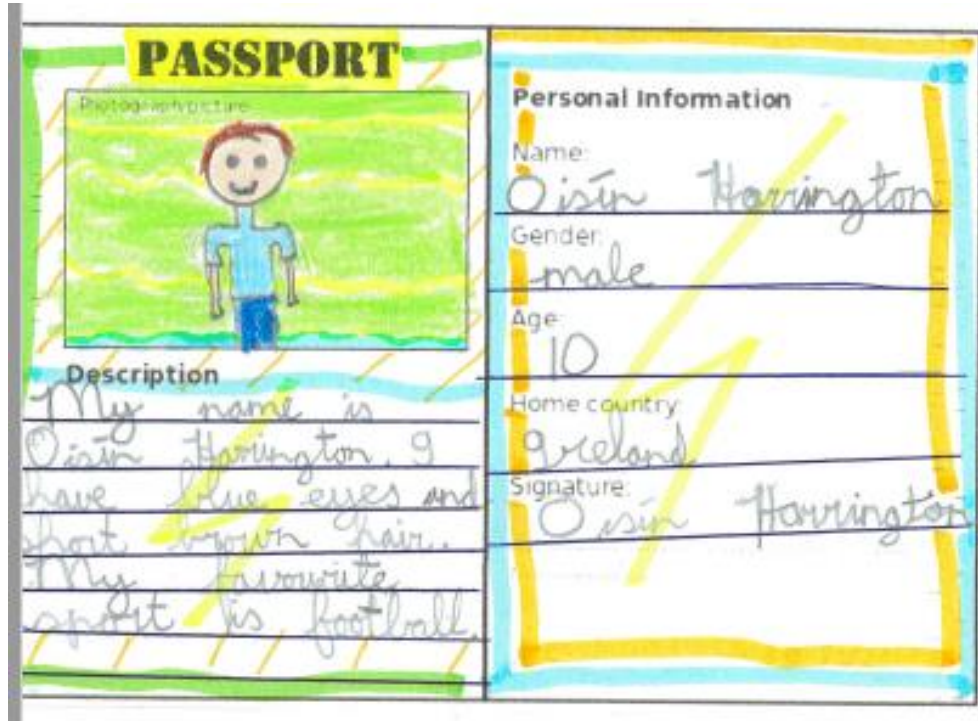 PASSPORT
Photograph/picture
Description
My name is
Oisín Harrington. I
have blue eyes and
short brown hair.
My favourite
sport is football.
Personal Information
Name:
Oisín Harrington
Gender:
male
Age:
10
Home country:
Ireland
Signature:
Oisín Harrington